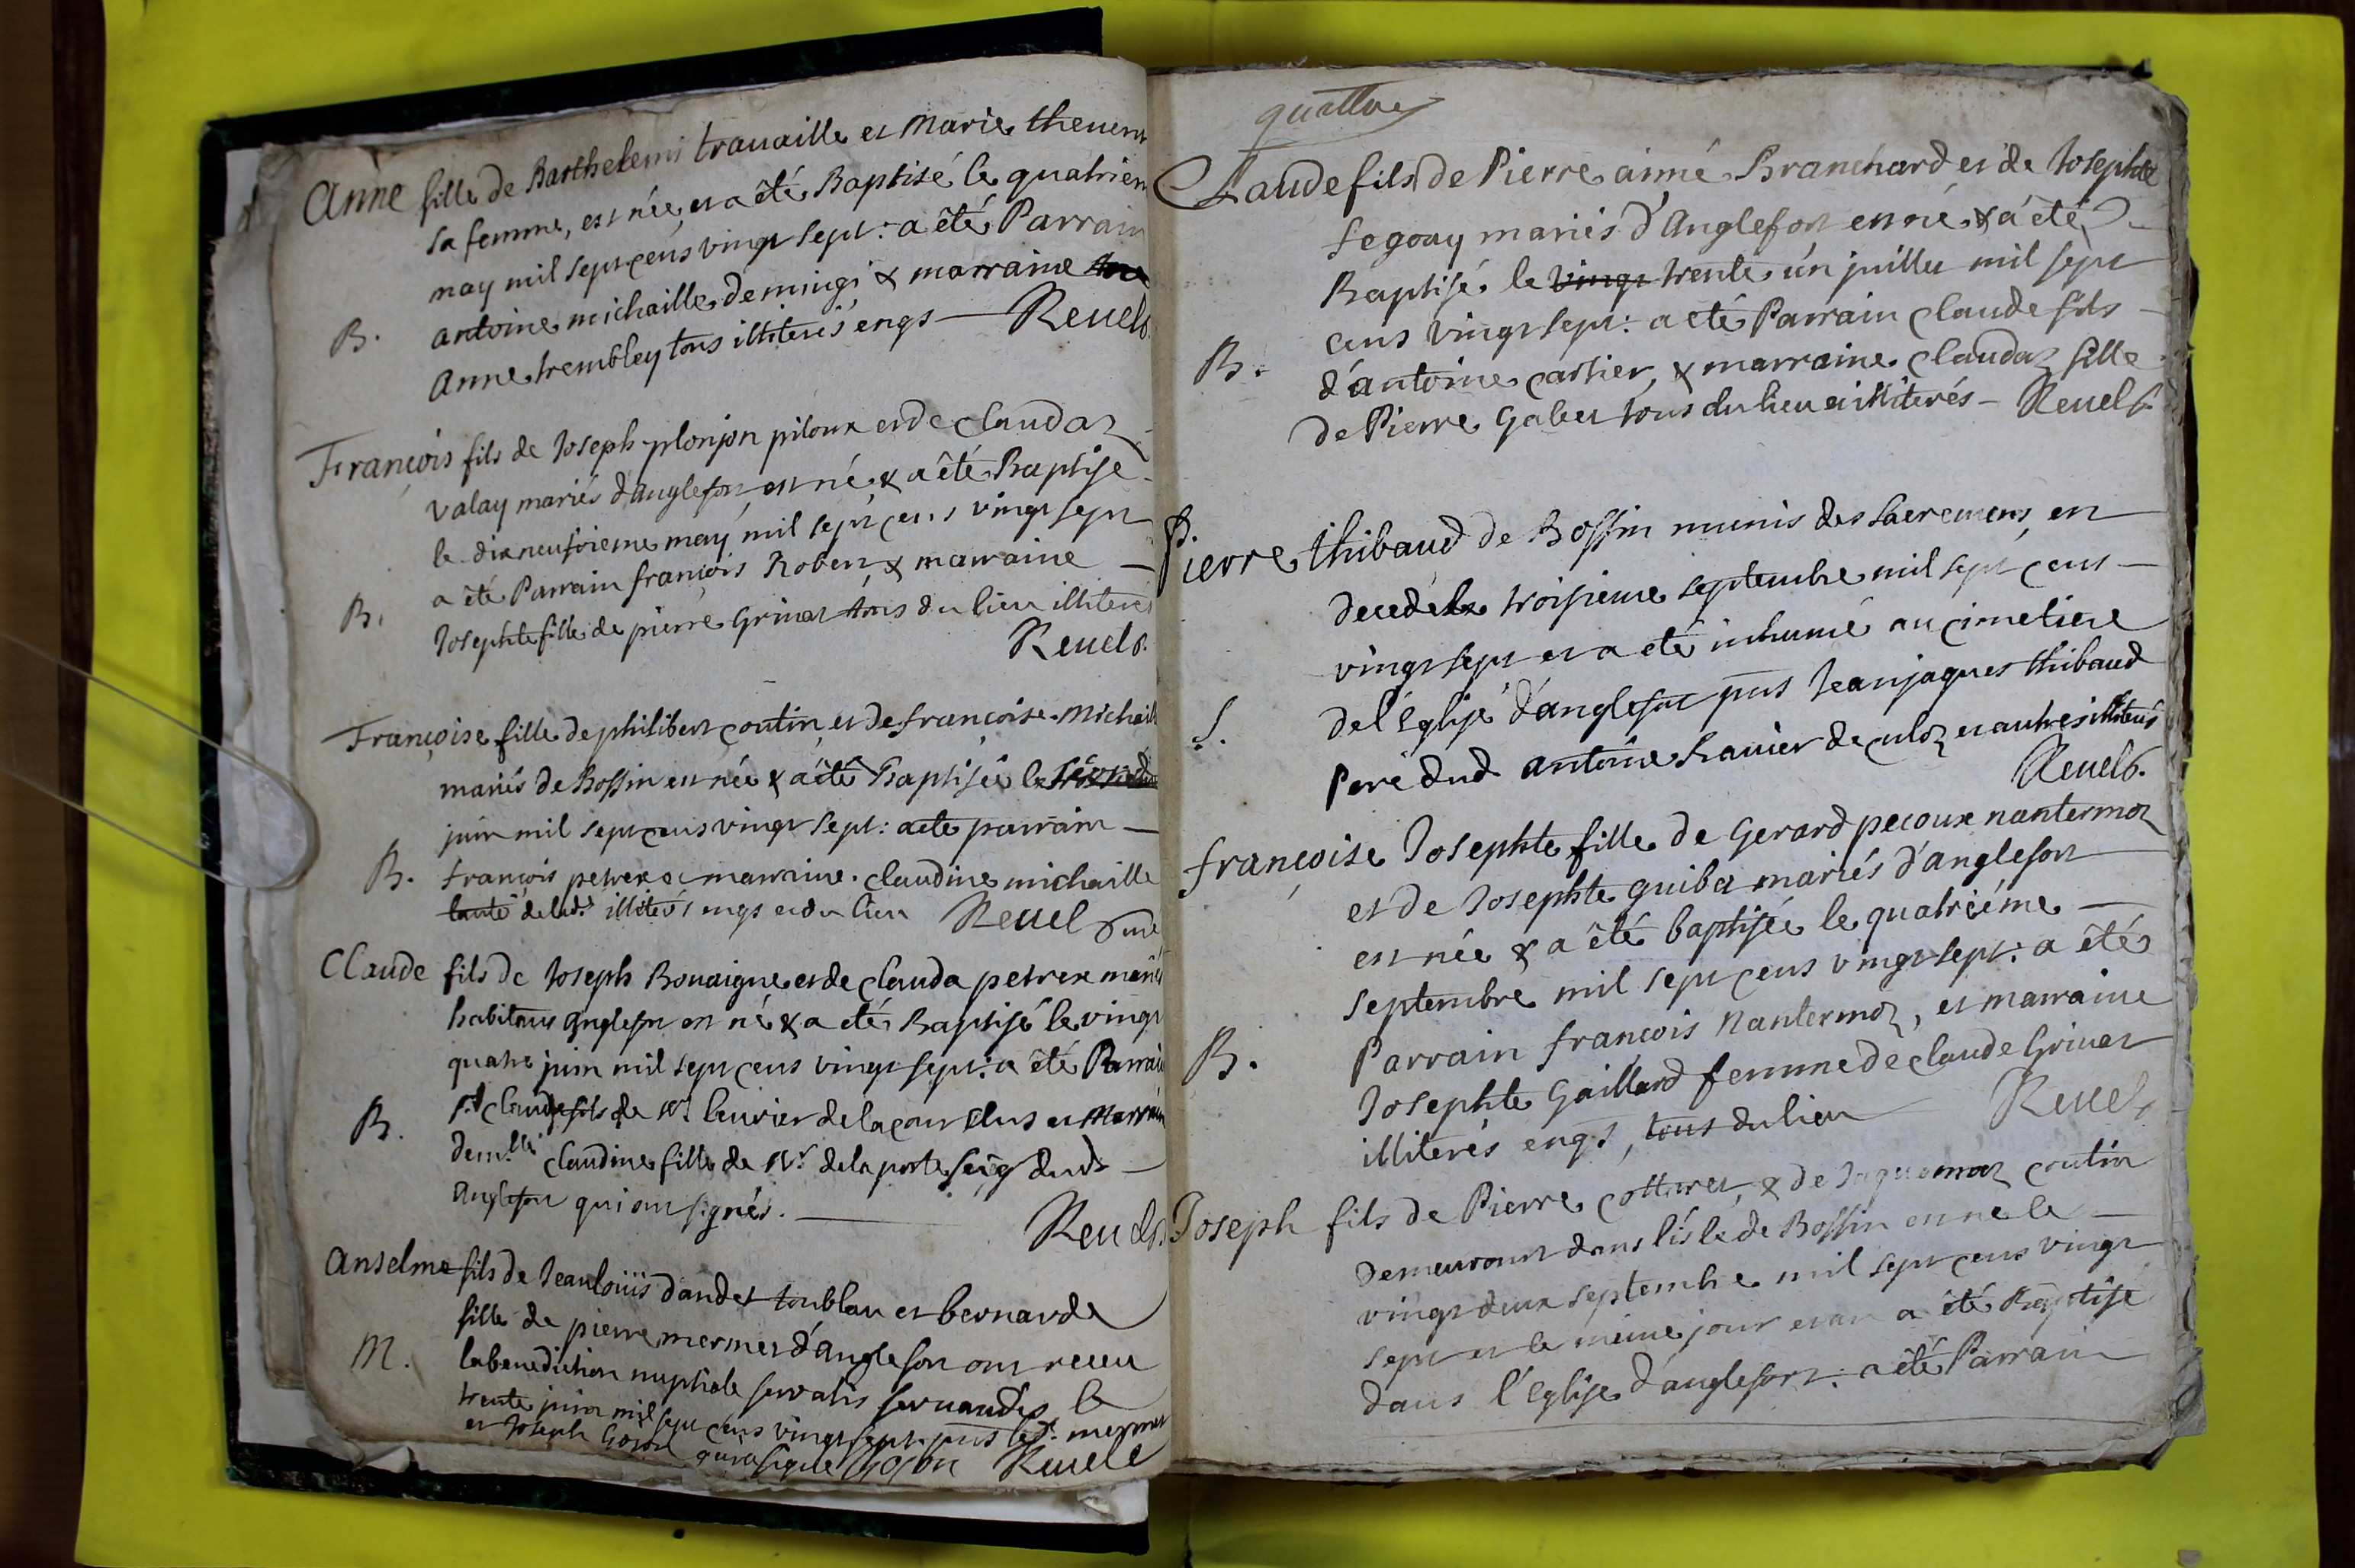 Anne fille de Barthelemi travaille et Marie thevenn
sa femme, est née, et a êté Baptisé le quatriem
may mil sept cens vingt sept: a êté Parrain
antoine michaille demingi & marraine
B.
Anne trembley tous illiterés engs — Revel
François fils de Joseph plonjon piloux et de Claudaz
Valay mariés danglefort est né & a êté Baptisé
le dixneufvieme may mil sept cens vingt sept
a êté Parrain françois Robert & marraine —
B.
Josephte fille de pierre Grinet tous du lieu illiterés
Revel
Françoise fille de philibert coutin et de françoise Michaill
mariés de Bossin est née & a été Baptisée le
juin mil sept cens vingt sept: a ete parrain —
B. François petrex & marraine claudine michaille
tante de lad. illiterés engs et du lieu Revel
Claude fils de Joseph Bovaigne et de Clauda petrex mariés
habitans Anglefort est né & a eté Baptisé le vingt
quatre juin mil sept cens vingt sept: a êté Parrain
B. Claude fils de Mr. de la cour et Marrain
Demlle Claudine fille de Mr. de la porte seig dud —
Anglefort qui ont signés. —
Revel
Anselme fils de Jean louïs dandet toublan et bernarde
fille de pierre mermet d'anglefort ont receu
M. la benediction nuptiale servatis servandis le
trente juin mil sept cens vingt sept. pnts led. mermet
et Joseph Gojon qui a signé Gojon Revel
quattre
Claude fils de Pierre aimé Branchard et de Josephte
Segouy mariés d'Anglefort est né & a été
Baptisé le vingt trente un juillet mil sept
cens vingt sept: a eté Parrain Claude fils —
B. d'antoine cartier, & marraine Claudaz fille
de Pierre Gabet tous du lieu et illiterés — Revel
S.
Pierre thibaud de Bossin munis des sacremens, en
decedé le troisieme septembre mil sept cens —
vingt sept et a eté inhumé au cimetiere
de l'Eglise d'anglefort pnts Jean jaques thibaud
S.
Pere dud antoine Ravier de culoz et autres illiterés
Revel
françoise Josephte fille de Gerard pecoux nantermoz
et de Josephte guibet mariés d'anglefort
est née & a êté baptisée le quatriéme —
septembre mil sept cens vingt sept: a êté
B. Parrain françois Nantermoz, et marraine
Josephte Gaillard femme de Claude Grinet
illiterés engs, tous du lieu Revel
Joseph fils de Pierre cottaret, & de Jaquemaz coutin
demeurant dans l'isle de Bossin est né le —
vingt deux septembre mil sept cens vingt
sept et le même jour et an a êté Baptisé
dans l'Eglise d'anglefort: a êté Parrain